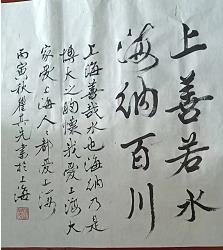 上善若水
海纳百川
上海善哉水也海纳乃是
博大之胸怀我爱上海大
家爱上海人々都爱上海
丙寅秋瞿其書於上海